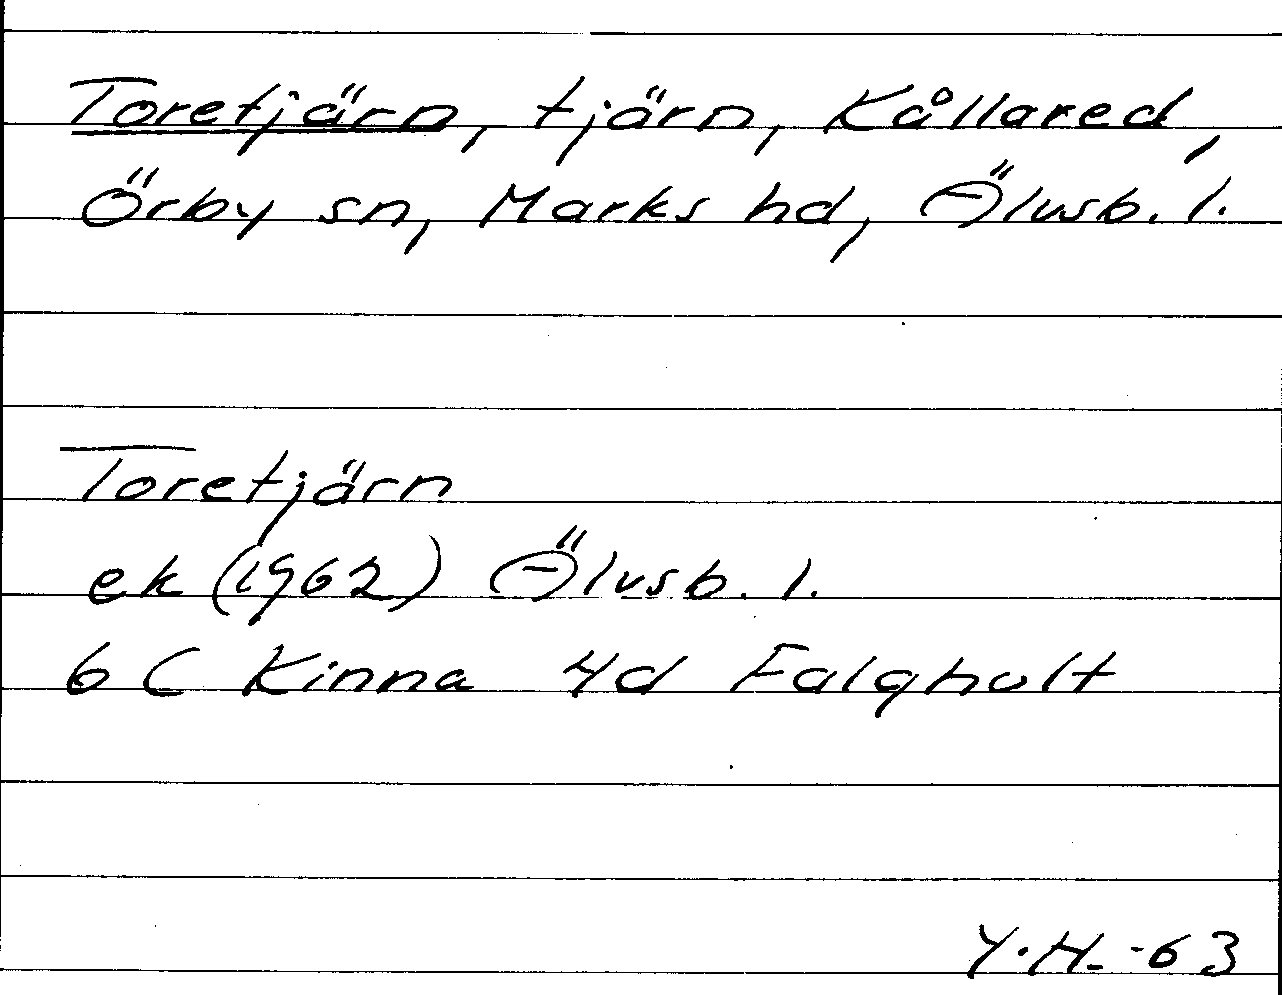 Toretjärn, tjärn, Kållared,
Örby sn, Marks hd, Älvsb. l.
Toretjärn
ek (1962) Älvsb. l.
6 C Kinna 4d Falghult
Y.H. -63